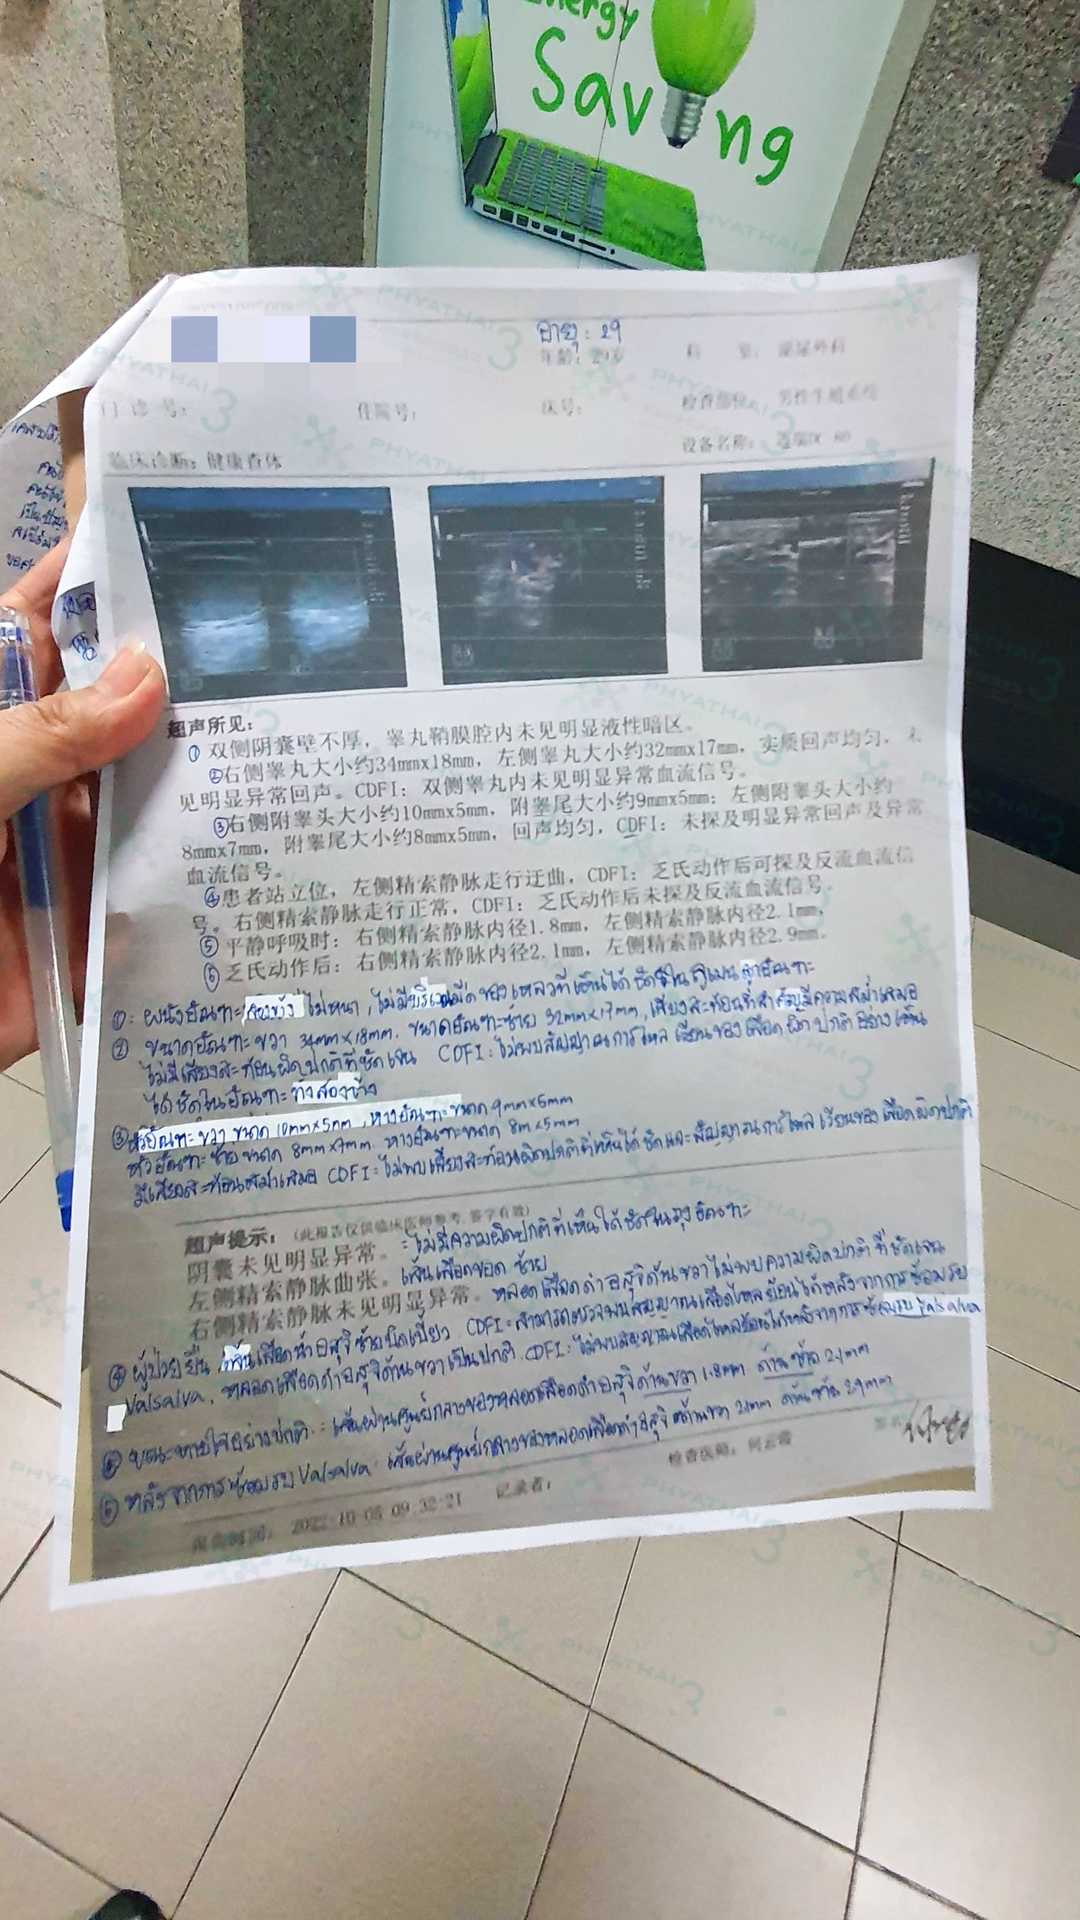 Energy
Saving
อายุ : 29
年龄：
科 室： 泌尿外科
门 诊 号：
住院号：
床号：
检查部位： 男性生殖系统
设备名称：
临床诊断：健康查体
超声所见：
① 双侧阴囊壁不厚，睾丸鞘膜腔内未见明显液性暗区。
②右侧睾丸大小约34mmx18mm，左侧睾丸大小约32mmx17mm，实质回声均匀，未
见明显异常回声。CDFI：双侧睾丸内未见明显异常血流信号。
③右侧附睾头大小约10mmx5mm，附睾尾大小约9mmx5mm；左侧附睾头大小约
8mmx7mm，附睾尾大小约8mmx5mm，回声均匀，CDFI：未探及明显异常回声及异常
血流信号。
④患者站立位，左侧精索静脉走行迂曲，CDFI：乏氏动作后可探及反流血流信
号。右侧精索静脉走行正常，CDFI：乏氏动作后未探及反流血流信号。
⑤ 平静呼吸时：右侧精索静脉内径1.8mm，左侧精索静脉内径2.1mm，
⑥ 乏氏动作后：右侧精索静脉内径2.1mm，左侧精索静脉内径2.9mm.
① : ผนังอัณฑะสองข้าง ไม่หนา , ไม่มีบริเวณมืดของเหลวที่เห็นได้ชัดใน
② ขนาดอัณฑะ ขวา 34mm x 18mm. ขนาดอัณฑะซ้าย 32mm x 17mm , เสียงสะท้อนที่สำคัญมีความสม่ำเสมอ
ไม่มีเสียงสะท้อนผิดปกติที่ชัดเจน CDFI : ไม่พบสัญญาณการไหลเวียนของเลือดผิดปกติอย่างเห็น
ได้ชัดในอัณฑะ ทั้งสองข้าง
③ หัวอัณฑะ ขวา ขนาด 10mm x 5mm , หางอัณฑะขนาด 9mm x 5mm
หัวอัณฑะซ้าย ขนาด 8mm x 7mm. หางอัณฑะขนาด 8m x 5mm
มีเสียงสะท้อนสม่ำเสมอ CDFI : ไม่พบเสียงสะท้อนผิดปกติที่เห็นได้ชัดและสัญญาณการไหลเวียนของเลือดผิดปกติ
超声提示：（此报告仅供临床医师参考，签字有效）
阴囊未见明显异常。 = ไม่มีความผิดปกติที่เห็นได้ชัดในถุงอัณฑะ
左侧精索静脉曲张。 เส้นเลือดขอด ซ้าย
右侧精索静脉未见明显异常。 หลอดเลือดดำอสุจิด้านขวาไม่พบความผิดปกติ ที่ชัดเจน
④ ผู้ป่วยยืน เส้นเลือดดำอสุจิซ้ายบิดเบี้ยว CDFI : สามารถตรวจพบสัญญาณเลือดไหลย้อนได้หลังจากการซ้อมรบ
Valsalva. หลอดเลือดดำอสุจิด้านขวาเป็นปกติ CDFI : ไม่พบสัญญาณเลือดไหลย้อนได้หลังจากการซ้อมรบ Valsalva
⑤ ขณะหายใจอย่างปกติ : เส้นผ่านศูนย์กลางของหลอดเลือดดำอสุจิด้านขวา 1.8mm ด้านซ้าย 2.1mm
⑥ หลังจากการซ้อมรบ Valsalva เส้นผ่านศูนย์กลางของหลอดเลือดดำอสุจิด้านขวา 2.1mm ด้านซ้าย 2.9mm
检查医师：
2022-10-05 09:32:21
记录者：
PHYATHAI 3